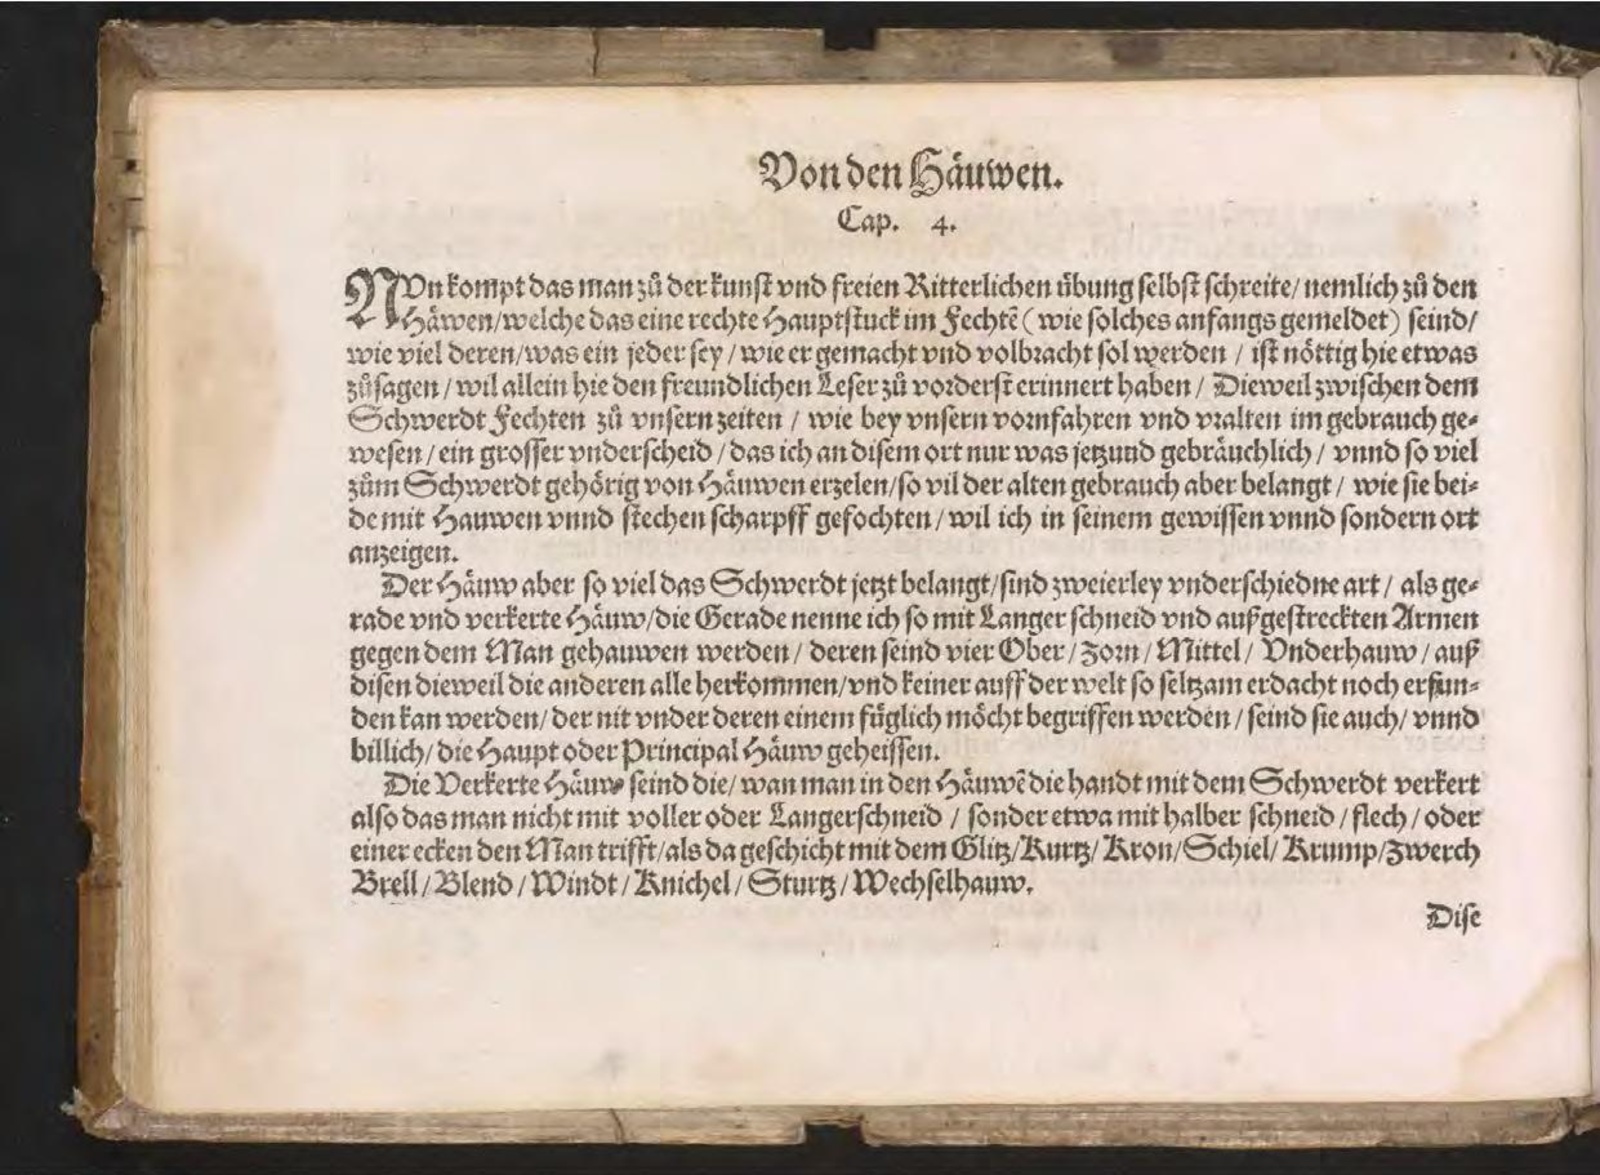 Von den Häuwen.
Cap. 4.
NVn kompt das man zů der kunst vnd freien Ritterlichen übung selbst schreite/ nemlich zů den
Häwen/welche das eine rechte Hauptstuck im Fechtẽ (wie solches anfangs gemeldet) seind/
wie viel deren/was ein jeder sey / wie er gemacht vnd volbracht sol werden / ist nöttig hie etwas
zůsagen / wil allein hie den freundlichen Leser zů vorderst erinnert haben / Dieweil zwischen dem
Schwerdt Fechten zů vnsern zeiten / wie bey vnsern vornfahren vnd vralten im gebrauch ge-
wesen / ein grosser vnderscheid / das ich an disem ort nur was jetzund gebräuchlich / vnnd so viel
zům Schwerdt gehörig von Häuwen erzelen/so vil der alten gebrauch aber belangt / wie sie bei-
de mit Hauwen vnnd stechen scharpff gefochten / wil ich in seinem gewissen vnnd sondern ort
anzeigen.
Der Häuw aber so viel das Schwerdt jetzt belangt/sind zweierley vnderschiedne art / als ge-
rade vnd verkerte Häuw/die Gerade nenne ich so mit Langer schneid vnd außgestreckten Armen
gegen dem Man gehauwen werden / deren seind vier Ober / Zorn / Mittel / Vnderhauw / auß
disen dieweil die anderen alle herkommen/vnd keiner auff der welt so seltzam erdacht noch erfun-
den kan werden/ der nit vnder deren einem füglich möcht begriffen werden / seind sie auch/ vnnd
billich/ die Haupt oder Principal Häuw geheissen.
Die Verkerte Häuw seind die/ wan man in den Häuwẽ die handt mit dem Schwerdt verkert
also das man nicht mit voller oder Langerschneid / sonder etwa mit halber schneid / flech / oder
einer ecken den Man trifft/als da geschicht mit dem Glitz/Kurtz/ Kron/Schiel/ Krump/Zwerch
Brell / Blend / Windt / Knichel / Sturtz / Wechselhauw.
Dise